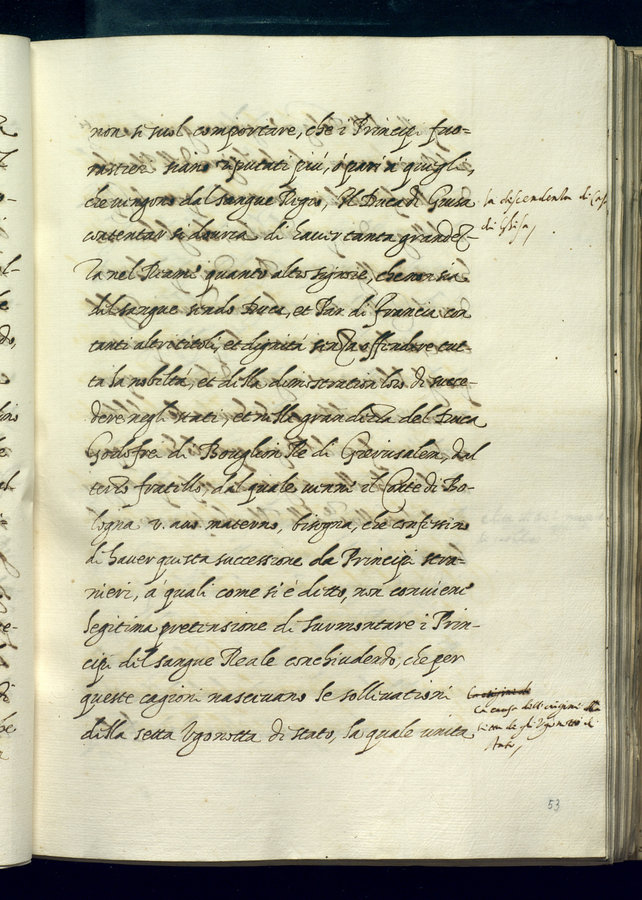 non si suol comportare, che i Principi fuo-
rastieri siano riputati più, ò pari à quegli,
che vengono dal sangue Regio, Il Duca di Guisa
contentar si douria di hauer tanta grandez-
za nel Reame quanto altro signore, che non sia
del sangue sendo Duca, et Par di Francia con
tanti altri titoli, et dignità senza offendere tut-
ta la nobiltà, et della dimostration loro di succe-
dere negli stati, et nelle grandezze del Duca
Godofre di Bouglion Re di Gierusalem, dal
terzo fratello, dal quale venne il Conte di Bo-
logna v. auo materno, bisogna, che confessino
di hauer questa successione da Principi stra-
nieri, à quali come si è ditto, non conviene
legitima pretensione di surmontare i Prin-
cipi del sangue Reale conchiudendo, che per
queste cagioni nasceuano le solleuationi
della setta Vgonotta di stato, la quale unita
la descendenta di Casa
di Ghisa,
La causa dell'origine della
de gli Vgonotti di
53